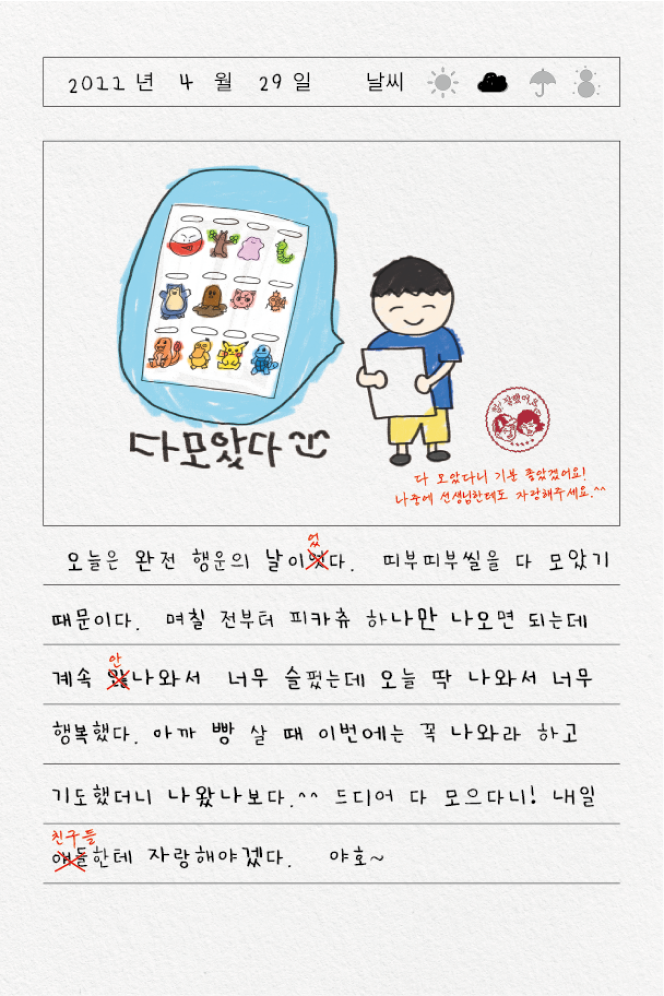 2022년 4월 29일 날씨
다모았다
참 잘했어요
다 모았다니 기분 좋았겠어요!
나중에 선생님한테도 자랑해주세요.^^
었
오늘은 완전 행운의 날이엿다. 띠부띠부씰을 다 모았기
때문이다. 며칠 전부터 피카츄 하나만 나오면 되는데
안
계속 않나와서 너무 슬펐는데 오늘 딱 나와서 너무
행복했다. 아까 빵 살 때 이번에는 꼭 나와라 하고
기도했더니 나왔나보다.^^ 드디어 다 모으다니! 내일
친구들
애들한테 자랑해야겠다. 야호~